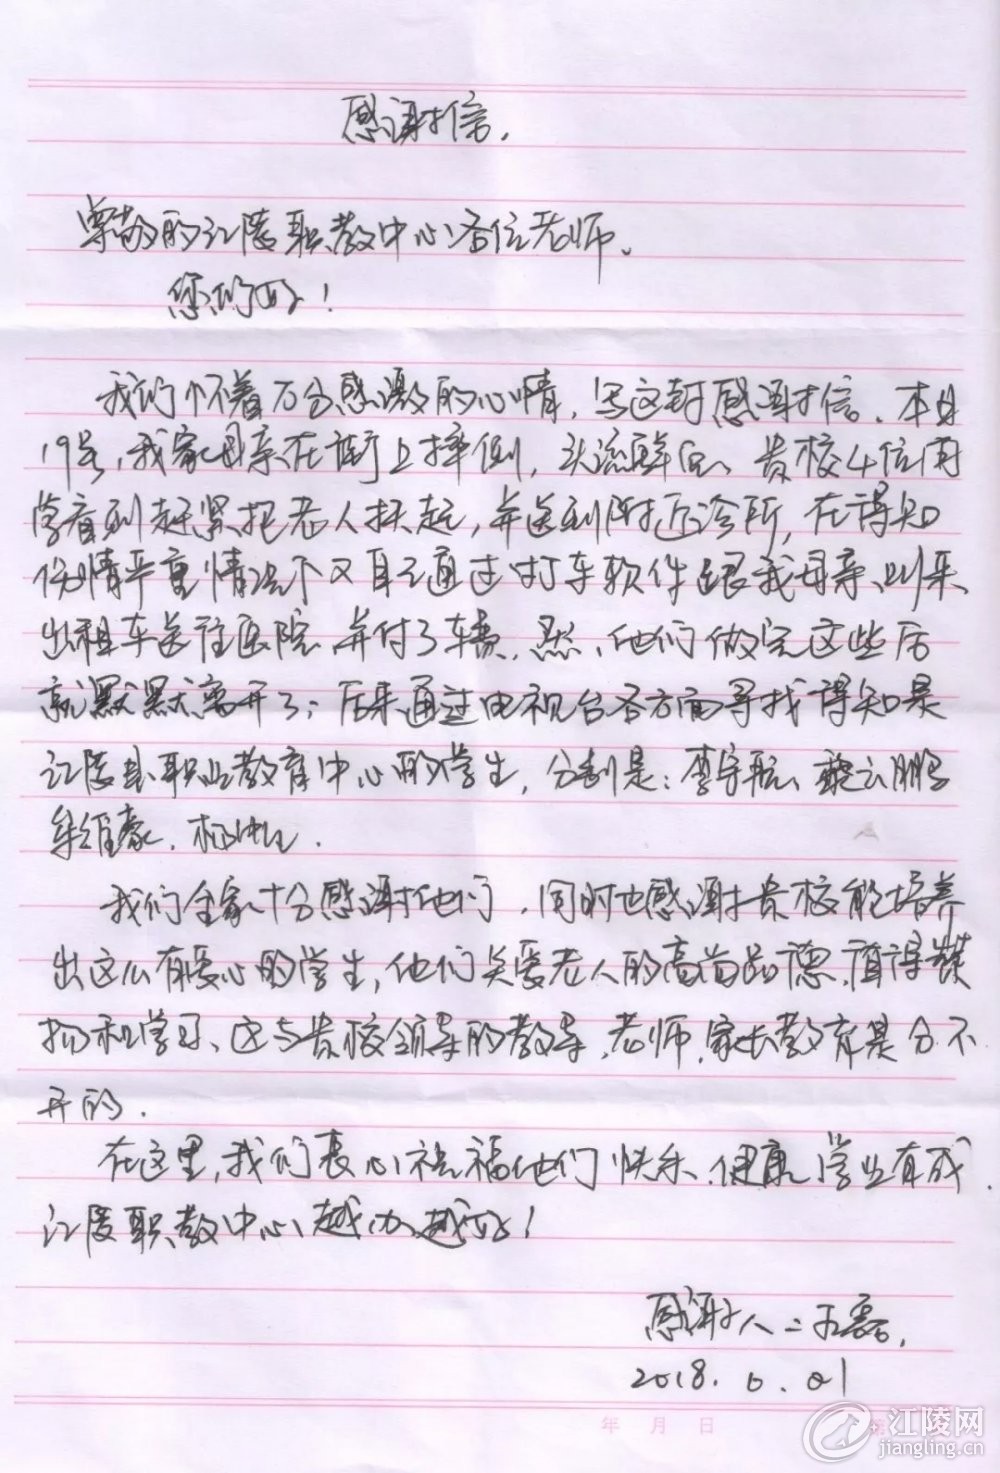 感谢信.
尊敬的江陵职教中心各位老师。
您们好!
我们怀着万分感激的心情,写这封感谢信.本月
19号,我家母亲在街上摔倒,头流鲜血、贵校4位同
学看到赶紧把老人扶起,并送到附近诊所,在得知
伤情严重情况下又自己通过打车软件跟我母亲叫来
出租车送往医院.并付了车费.然,他们做完这些后
就默默离开了;后来通过电视台各方面寻找得知是
江陵县职业教育中心的学生,分别是:李宇航、魏云鹏
牟维豪.
我们全家十分感谢他们,同时也感谢贵校能培养
出这么有爱心的学生,他们关爱老人的高尚品德.值得赞
扬和学习、这与贵校领导的教导.老师.家长教育是分不
开的.
在这里,我们衷心祝福他们快乐.健康.学业有成.
江陵职教中心越办越好!
感谢人:王磊.
2018.6.01
年 月 日 第
江陵网
jiangling.cn